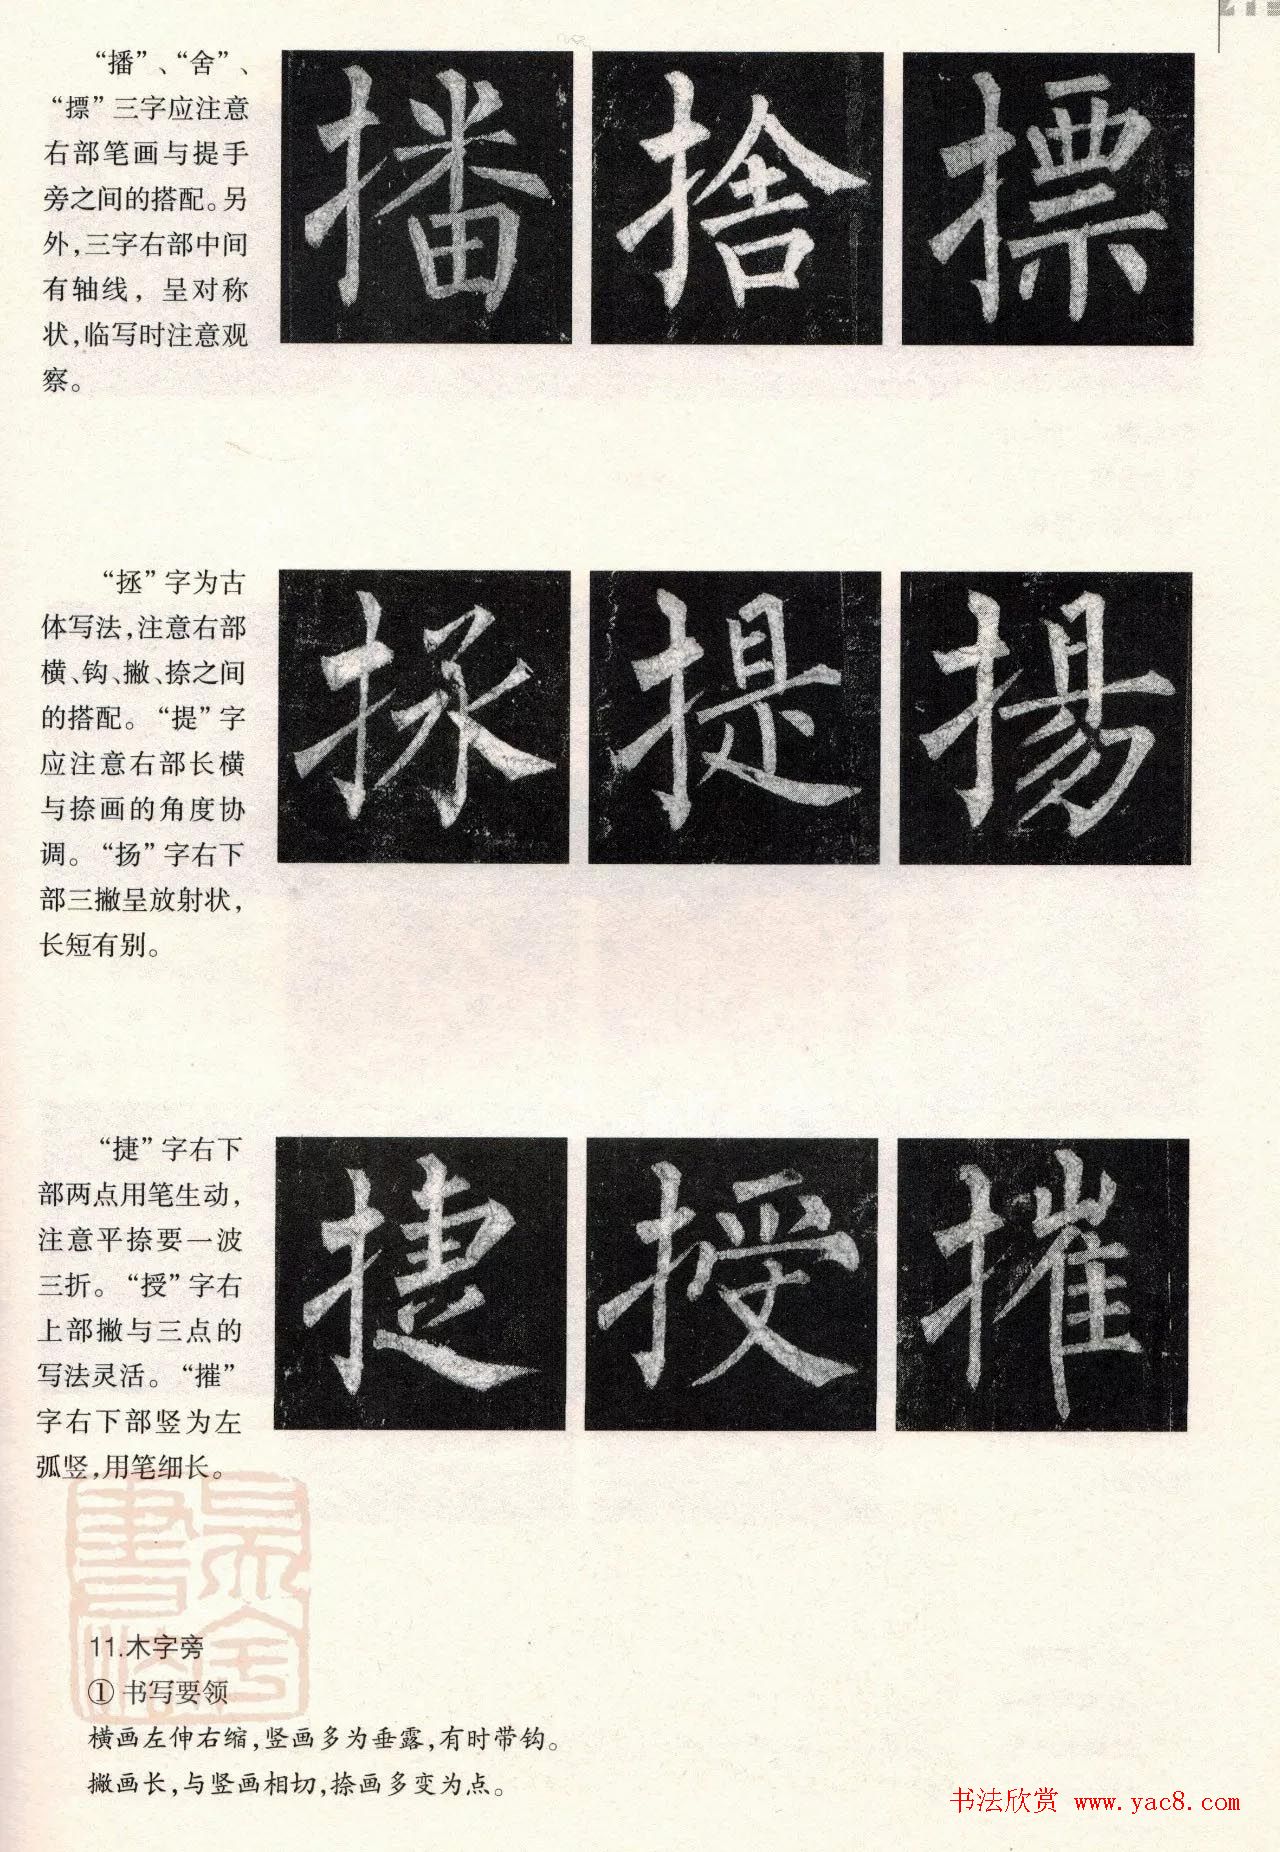 “播”、“舍”、
“摽”三字应注意
右部笔画与提手
旁之间的搭配。另
外，三字右部中间
有轴线，呈对称
状，临写时注意观
察。
播 捨 摽
“拯”字为古
体写法，注意右部
横、钩、撇、捺之间
的搭配。“提”字
应注意右部长横
与捺画的角度协
调。“扬”字右下
部三撇呈放射状，
长短有别。
拯 提 揚
“捷”字右下
部两点用笔生动，
注意平捺要一波
三折。“授”字右
上部撇与三点的
写法灵活。“摧”
字右下部竖为左
弧竖，用笔细长。
捷 授 摧
11.木字旁
① 书写要领
横画左伸右缩，竖画多为垂露，有时带钩。
撇画长，与竖画相切，捺画多变为点。
书法欣赏 www.yac8.com